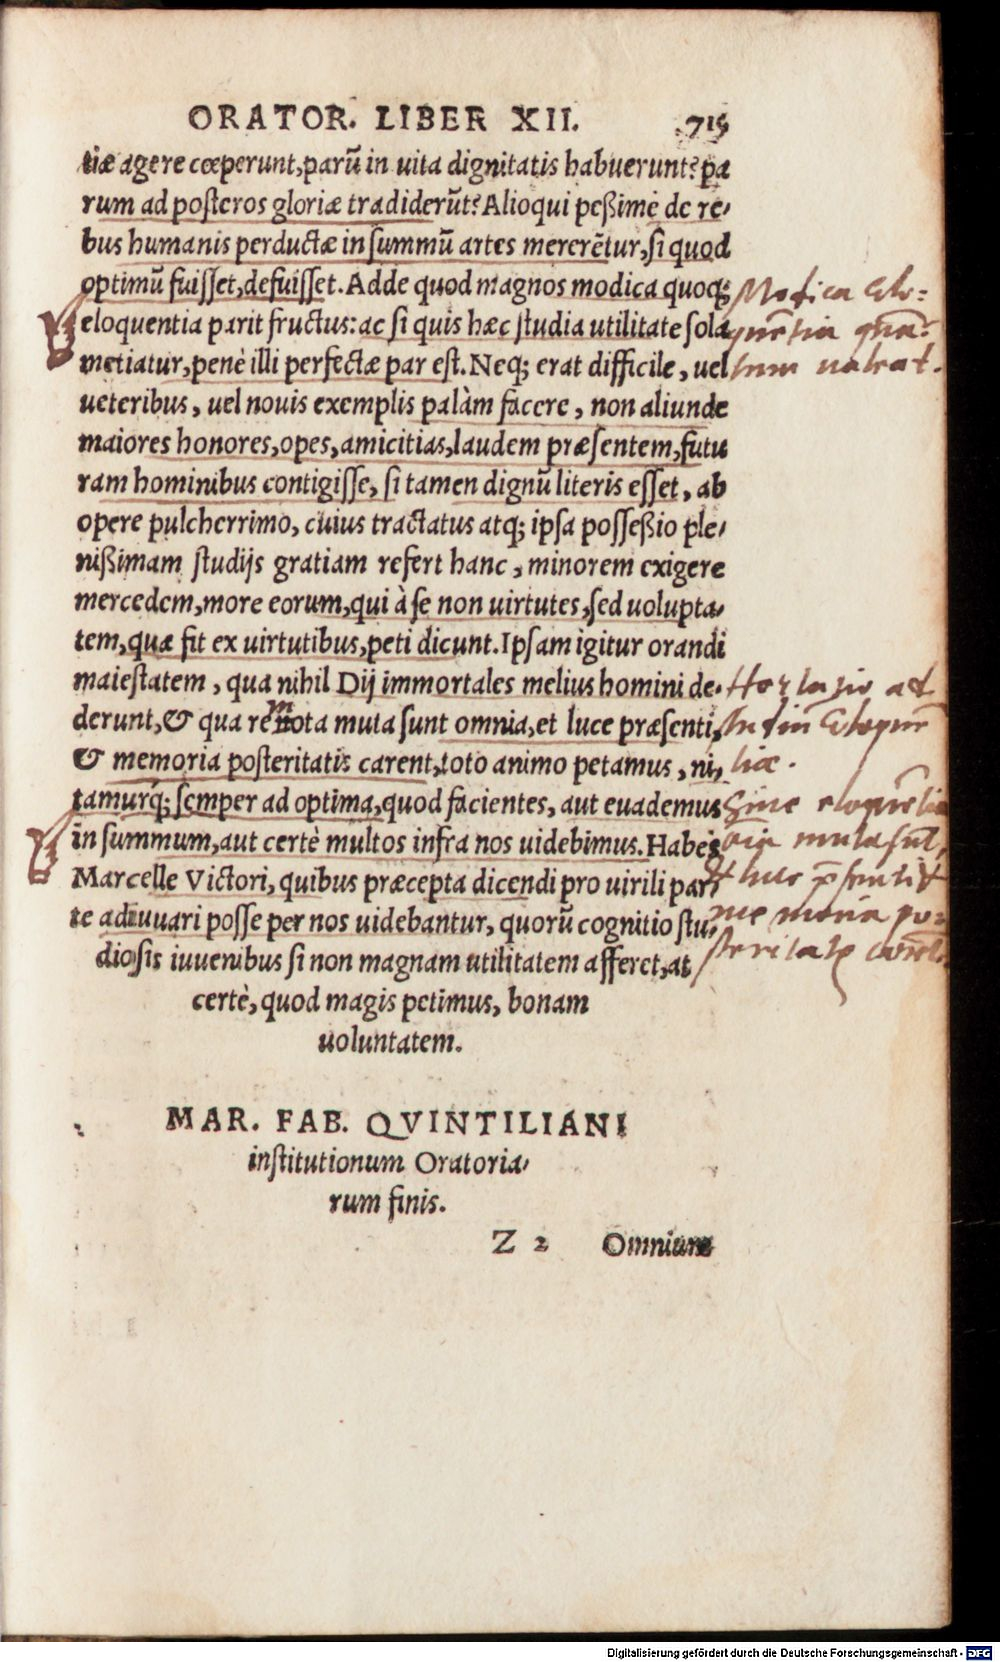 ORATOR. LIBER XII. 715
tiæ agere cœperunt, parũ in uita dignitatis habuerunt? pa
rum ad posteros gloriæ tradiderũt? Alioqui peßimè de re-
bus humanis perductæ in summũ artes mererẽtur, si quod
optimũ fuisset, defuisset. Adde quod magnos modica quoq;
eloquentia parit fructus: ac si quis hæc studia utilitate sola
metiatur, penè illi perfectæ par est. Neq; erat difficile, uel
ueteribus, uel nouis exemplis palàm facere, non aliunde
maiores honores, opes, amicitias, laudem præsentem, futu
ram hominibus contigisse, si tamen dignũ literis esset, ab
opere pulcherrimo, cuius tractatus atq; ipsa posseßio ple-
nißimam studijs gratiam refert hanc, minorem exigere
mercedem, more eorum, qui à se non uirtutes, sed uolupta-
tem, quæ fit ex uirtutibus, peti dicunt. Ipsam igitur orandi
maiestatem, qua nihil Dij immortales melius homini de-
derunt, & qua remota muta sunt omnia, et luce præsenti,
& memoria posteritatis carent, toto animo petamus, ni-
tamurq; semper ad optima, quod facientes, aut euademus
in summum, aut certè multos infra nos uidebimus. Habes
Marcelle Victori, quibus præcepta dicendi pro uirili par-
te adiuuari posse per nos uidebantur, quorũ cognitio stu-
diosis iuuenibus si non magnam utilitatem afferet, at
certè, quod magis petimus, bonam
uoluntatem.
Modica Elo=
quẽtia quã=
tum ualeat.
Hortatio ad
studiũ Eloquẽ
tiæ.
Sine eloquẽtia
oĩa muta sũt,
et luce p̃senti &
memoria po=
steritatis carẽt.
MAR. FAB. QVINTILIANI
institutionum Oratoria-
rum finis.
Z 2 Omnium
Digitalisierung gefördert durch die Deutsche Forschungsgemeinschaft - DFG